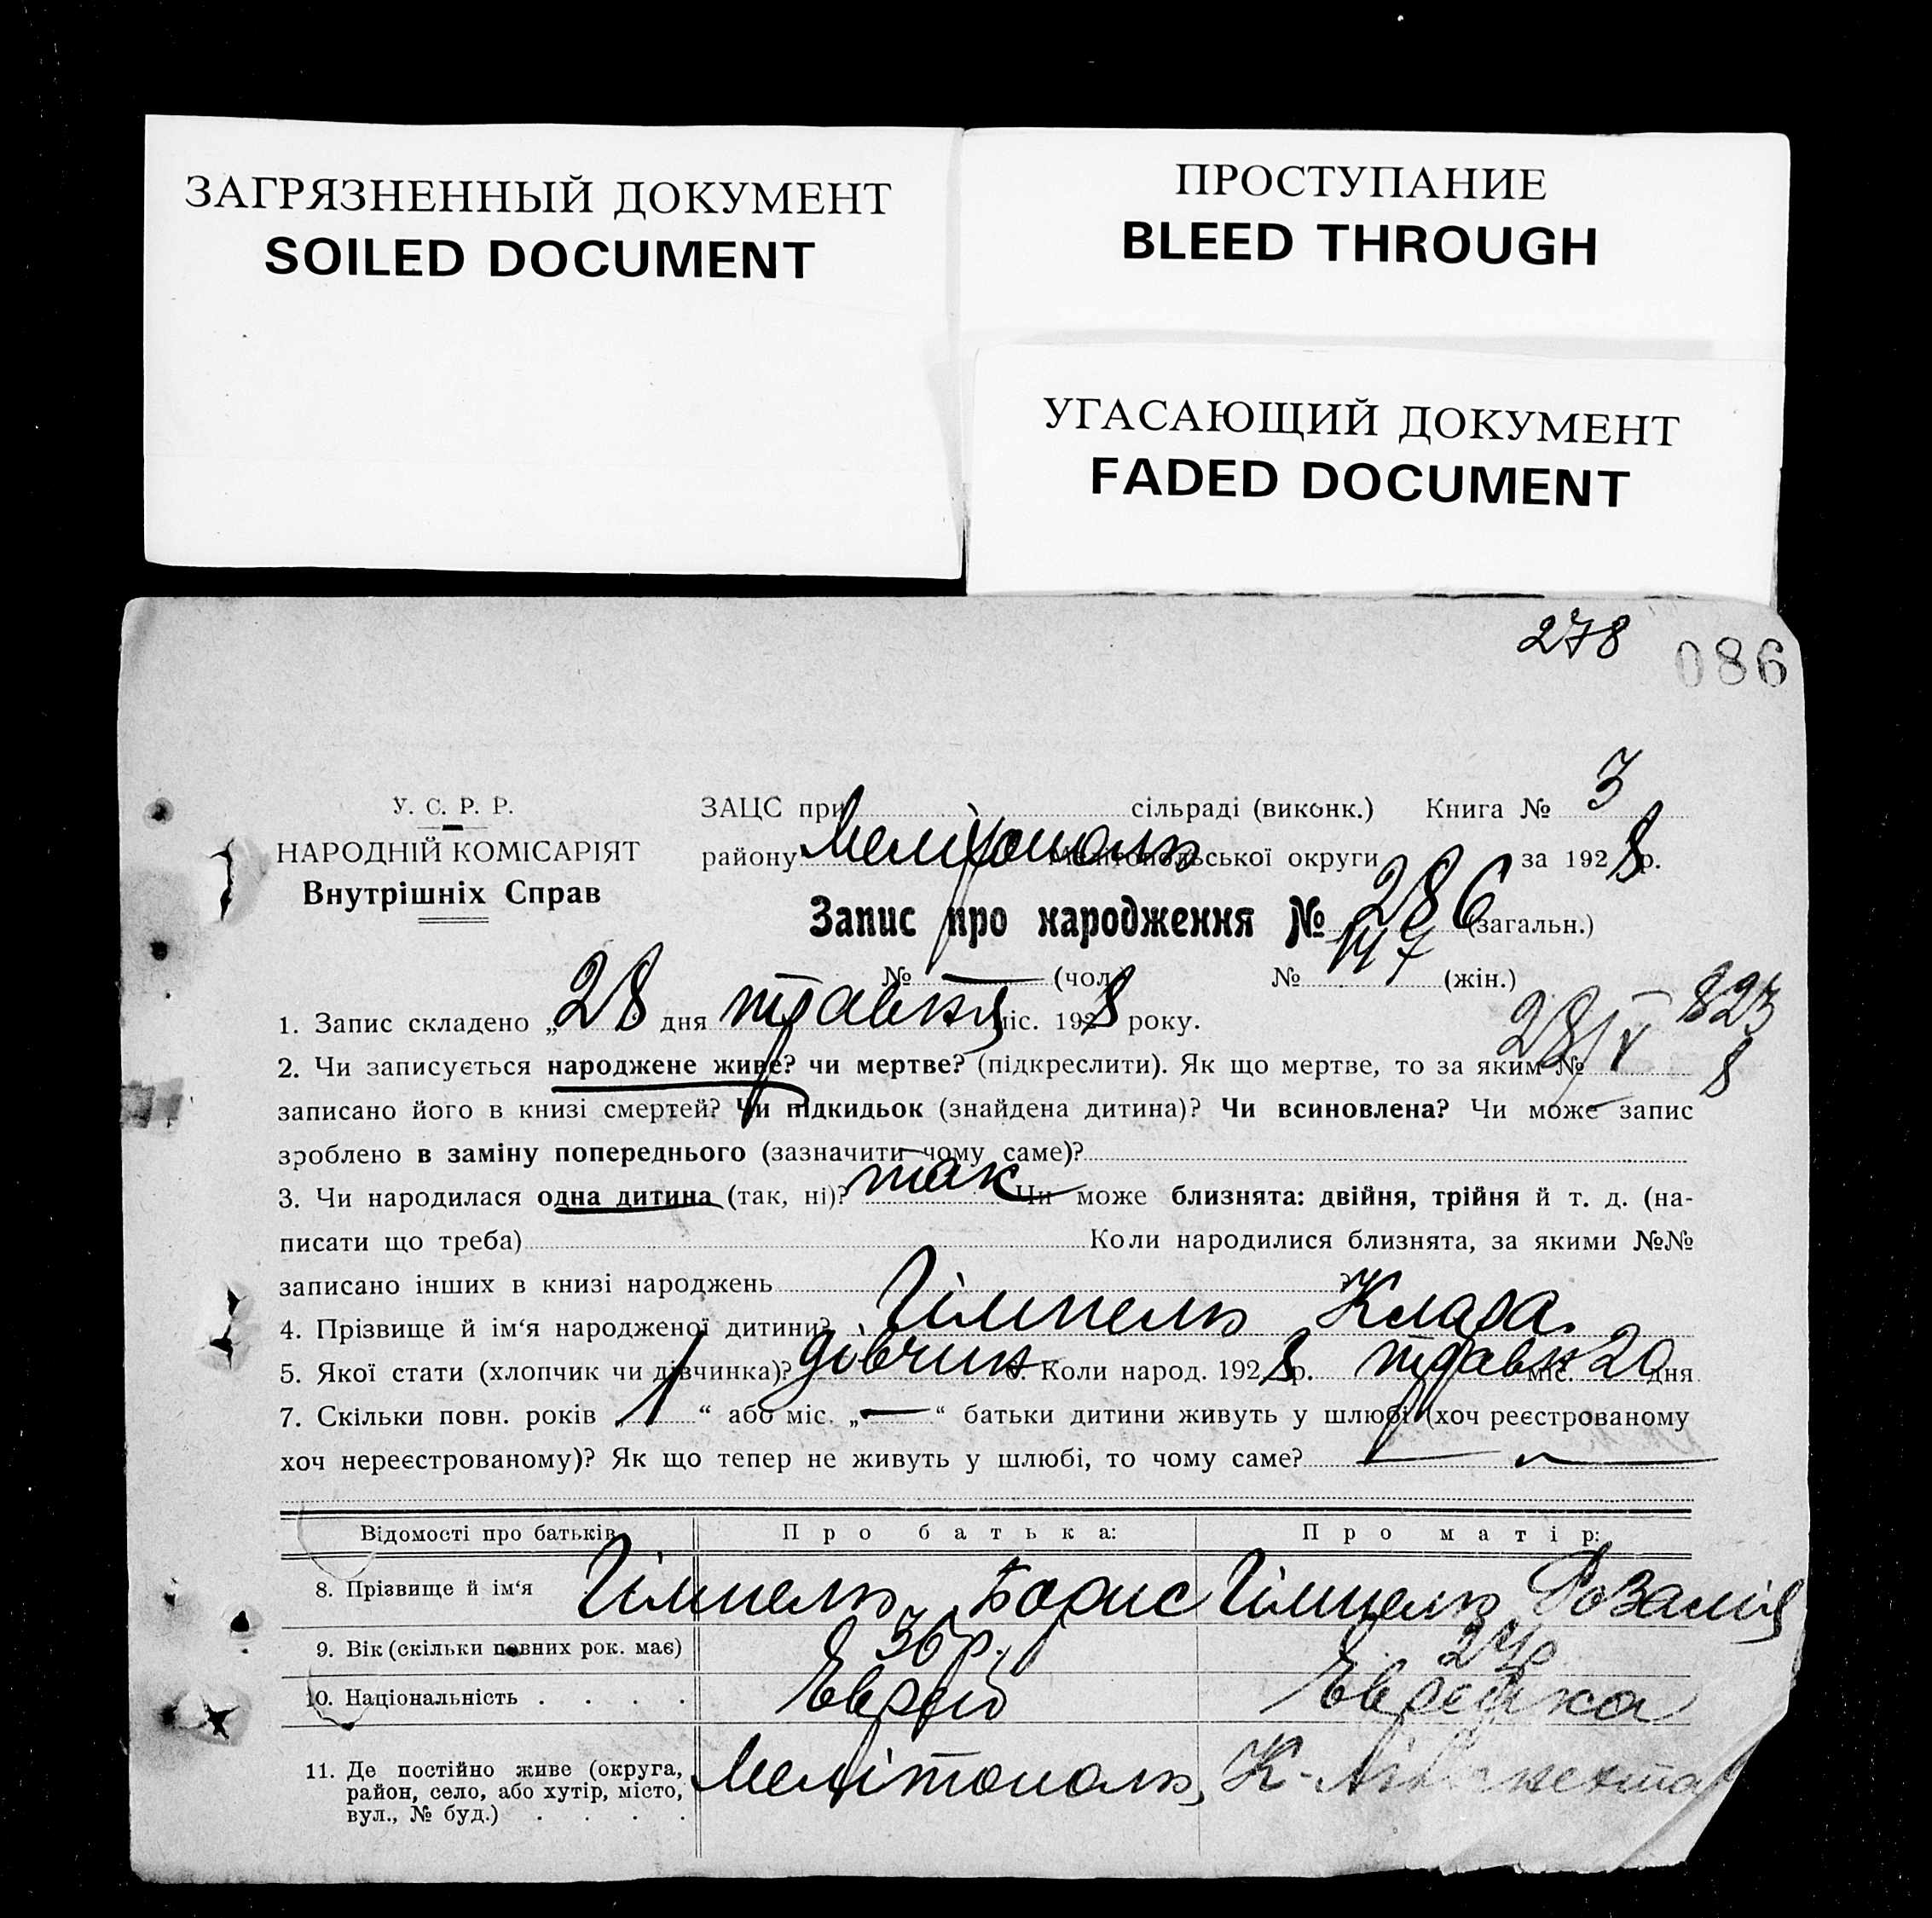 ЗАГРЯЗНЕННЫЙ ДОКУМЕНТ
SOILED DOCUMENT
ПРОСТУПАНИЕ
BLEED THROUGH
УГАСАЮЩИЙ ДОКУМЕНТ
FADED DOCUMENT
278 086
У. С. Р. Р.
НАРОДНІЙ КОМІСАРІЯТ
Внутрішніх Справ
ЗАЦС при сільраді (виконк.) Книга № 3
району Мелітополь Мелітопольської округи за 1928 р.
Запис про народження № 286 (загальн.)
№ — (чол.) № 147 (жін.)
1. Запис складено „28 дня травня міс. 1928 року.
28/V 823
8
2. Чи записується народжене живе? чи мертве? (підкреслити). Як що мертве, то за яким №
записано його в книзі смертей? Чи підкидьок (знайдена дитина)? Чи всиновлена? Чи може запис
зроблено в заміну попереднього (зазначити чому саме)?
3. Чи народилася одна дитина (так, ні)? так Чи може близнята: двійня, трійня й т. д. (на-
писати що треба) Коли народилися близнята, за якими №№
записано інших в книзі народжень ?
4. Прізвище й ім‘я народженої дитини? Гімпель Клара
5. Якої стати (хлопчик чи дівчинка)? дівчин 6. Коли народ. 1928 р. травн міс. 20 дня
7. Скільки повн. років „1“ або міс. „—“ батьки дитини живуть у шлюбі (хоч реєстрованому
хоч нереєстрованому)? Як що тепер не живуть у шлюбі, то чому саме? —
Відомості про батьків Про батька: Про матір:
8. Прізвище й ім‘я Гімпель Борис Гімпель Розалія
9. Вік (скільки повних рок. має) 36 р. 27 р
10. Національність . . . . Еврей Еврейка
11. Де постійно живе (округа,
район, село, або хутір, місто,
вул., № буд.) . . . .
Мелітополь, К-